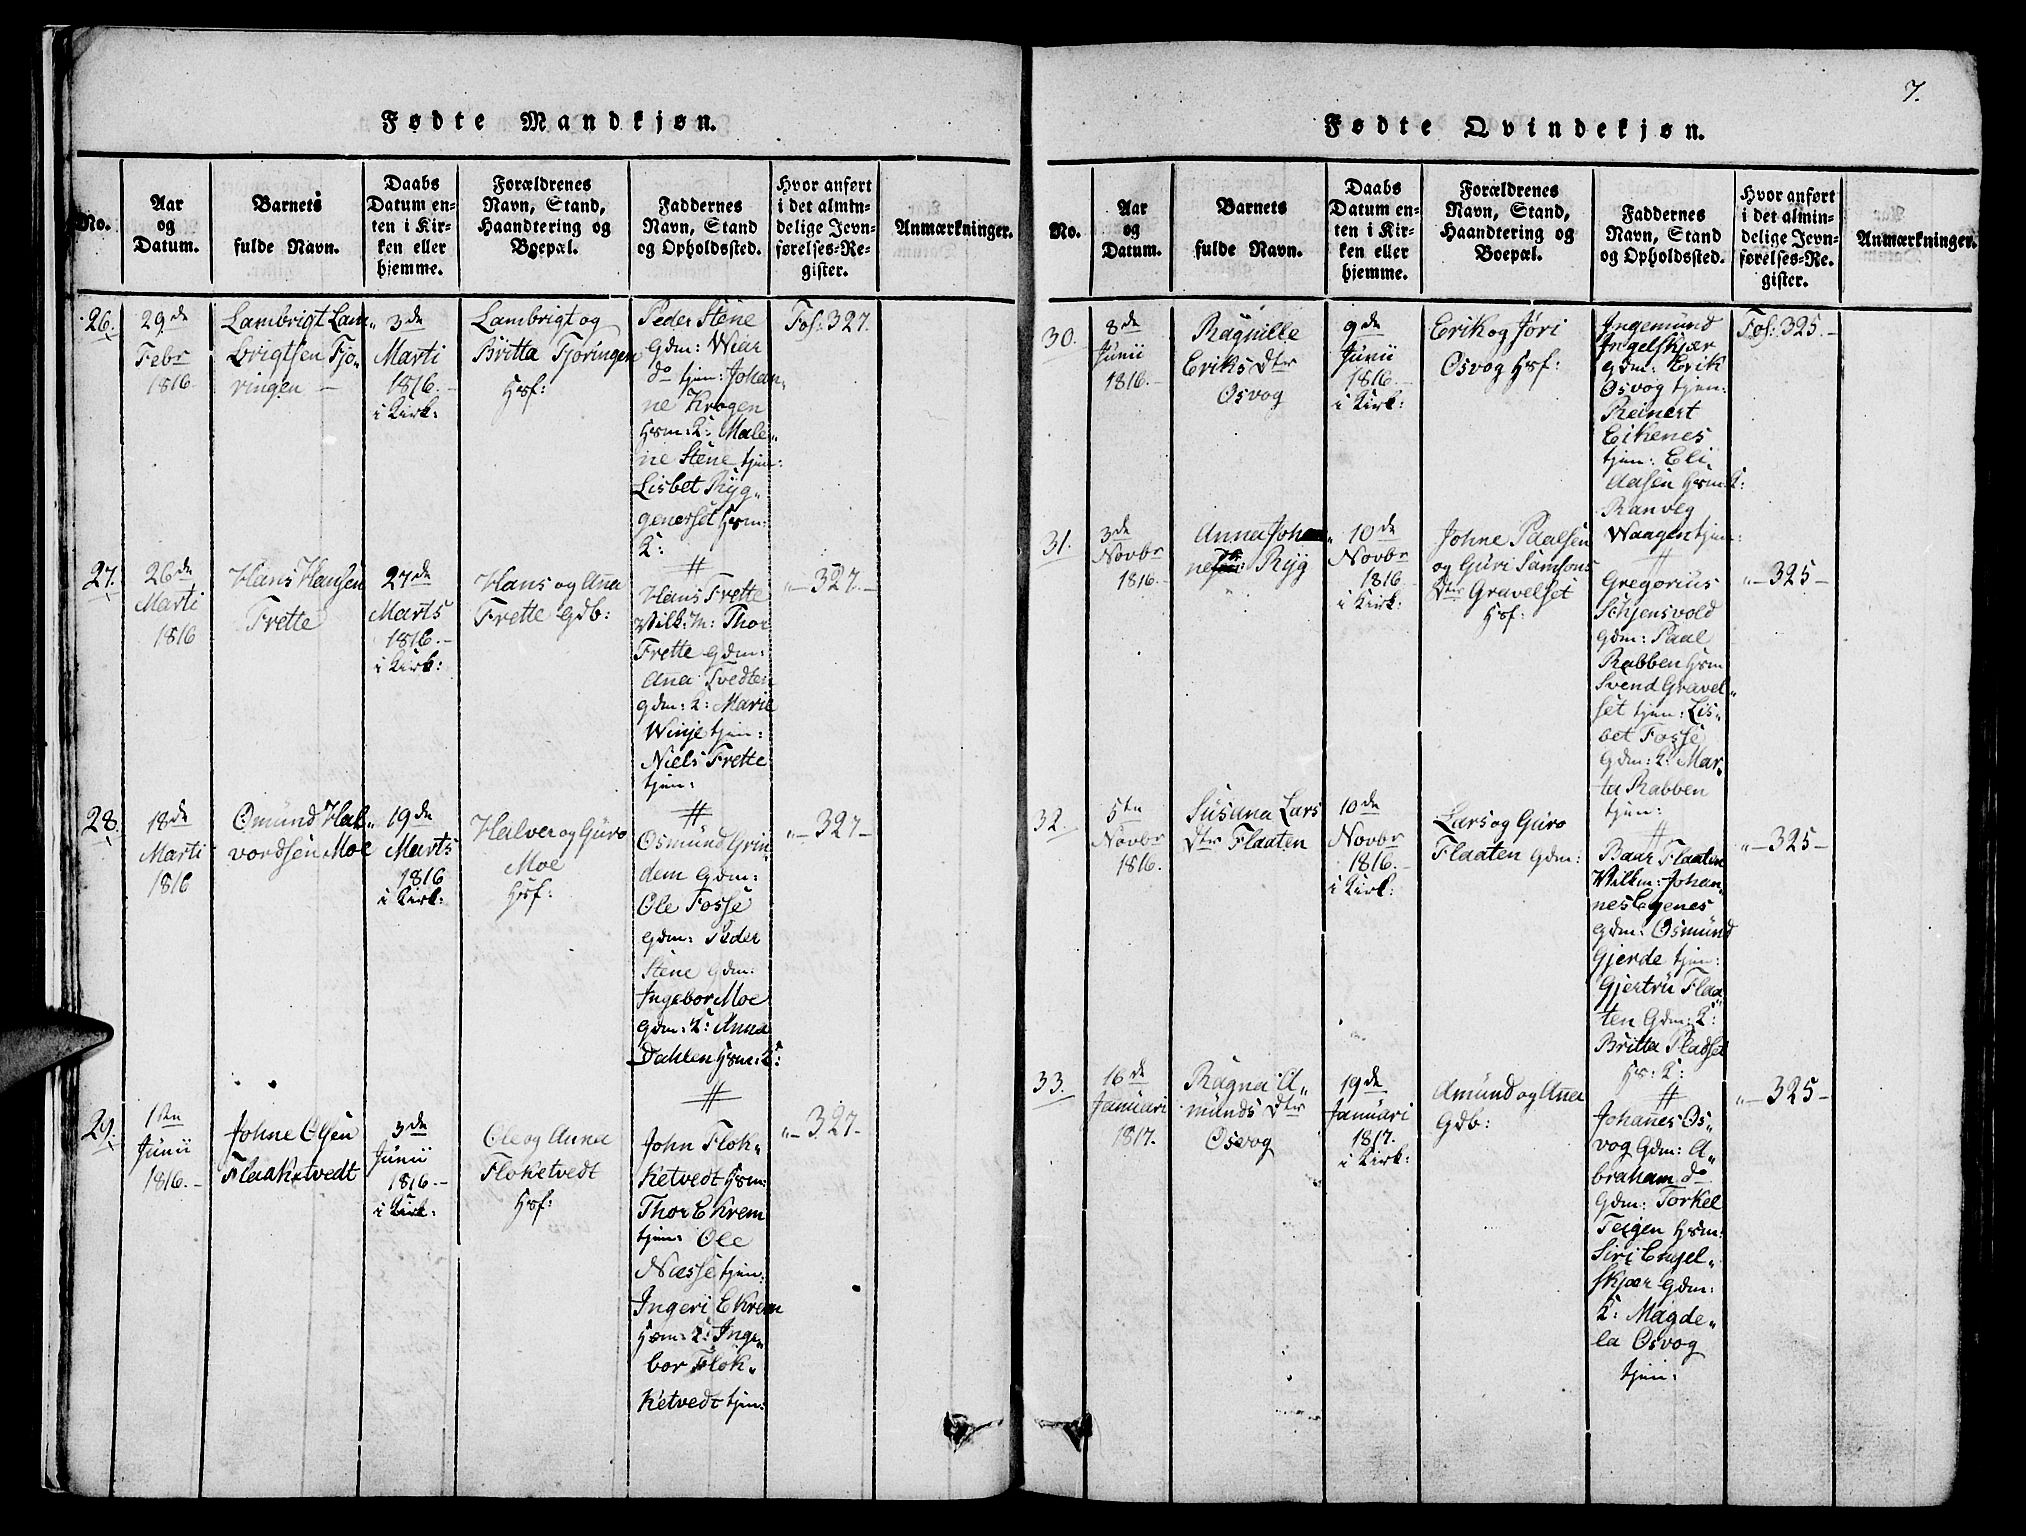 7.
Fødte Mandkjøn.
No.
Aar
og
Datum.
Barnets
fulde Navn.
Daabs
Datum en-
ten i Kir-
ken eller
hjemme.
Forældrenes
Navn, Stand,
Haandtering og
Boepæl.
Faddernes
Navn, Stand
og Opholdssted.
Hvor anført
i det almin-
delige Jevn-
førelses-Re-
gister.
Anmærkninger.
26.
29de
Febr
1816.
Lambrigt Lam„
brigtsen Fjø„
ringen —
3de
Marti
1816.—
i Kirk:
Lambrigt og
Britta Fjøringen
Hsf:
Peder Stene
Gdm: Wiar
do tjen: Johan„
ne Krogen
Hsm: K: Male„
ne Stene tjen:
Lisbet Ryg„
generset Hsm:
K:
Fol: 327.
27.
26de
Marti
1816
Hans Hansen
Frette
27de
Marts
1816.—
i Kirk:
Hans og Ana
Frette Gdb:
Hans Frette
Vilk: M: Thor
Frette Gdm:
Ana Tvedten
gdm: K: Marie
Winje tjen:
Niels Frette
tjen:
„— 327.—
28.
18de
Marti
1816
Omund Hal„
vordsen Moe
19de
Marts
1816
i Kirk:
Halver og Guro
Moe
Hsf:
Osmund Grin
dem Gdm:
Ole Fosse
gdm: Peder
Stene Gdm:
Ingebor Moe
Gdm: K: Anna
Dahlen Hsm: K:
„— 327—
29.
1ten
Junii
1816.—
Johne Olsen
Flaaketvedt
3de
Junii
1816.—
i Kirk:
Ole og Anna
Floketvedt
Hsf:
John Flok„
ketvedt Hsm:
Thor Ekrem
tjen: Ole
Næsse tjen:
Ingeri Ekrem
Hsm: K: Inge„
bor Flok„
ketvedt tjen:
„— 327—
Fødte Qvindekjøn.
No.
Aar
og
Datum.
Barnets
fulde Navn.
Daabs
Datum en-
ten i Kir-
ken eller
hjemme.
Forældrenes
Navn, Stand,
Haandtering og
Boepæl.
Faddernes
Navn, Stand
og Opholdssted.
Hvor anført
i det almin-
delige Jevn-
førelses-Re-
gister.
Anmærkninger.
30.
8de
Junii
1816.—
Ragnille
Eriks Dtr
Osvog
9de
Junii
1816.—
i Kirk:
Erik og Jøri
Osvog Hsf:
Ingemund
Ingelskjær
gdm: Erik
Osvog tjen:
Reinert
Eikenes
tjen: Eli
Aasen Hsm: K:
Ranveg
Waagen tjen:
Fol: 325.—
31.
3de
Novbr
1816.—
Anna Johan„
Ryg
10de
Novbr
1816.—
i Kirk:
Johne Paalsen
og Guri Samsons
Dtr Gravelset
Hsf:
Gregorius
Schjensvold
Gdm: Paal
Rabben Hsm
Svend Gravel„
set tjen: Lis„
bet Fosse
Gdm: K: Mar„
ta Rabben
tjen:
„— 325—
32.
5ten
Novbr
1816.
Susana Lars
Dtr Flaaten
10de
Novbr
1816.—
i Kirk:
Lars og Guro
Flaaten Gdm:
Baar Flaaten
Vilkm: Johan„
nes Egenes
Gdm: Osmund
Gjerde tjen:
Gjertru Flaa„
ten Gdm: K:
Britta Pladset
Hs: K:
„— 325—
33.
16de
Januari
1817.
Ragna A„
munds Dtr
Osvog
19de
Januari
1817.
i Kirk:
Amund og Anna
Gdb:
Johanes Os„
vog Gdm: A„
braham do
Gdm: Torkel
Teigen Hsm:
Siri Engel„
skjær Gdm:
K: Magde„
la Osvog
tjen:
„— 325—